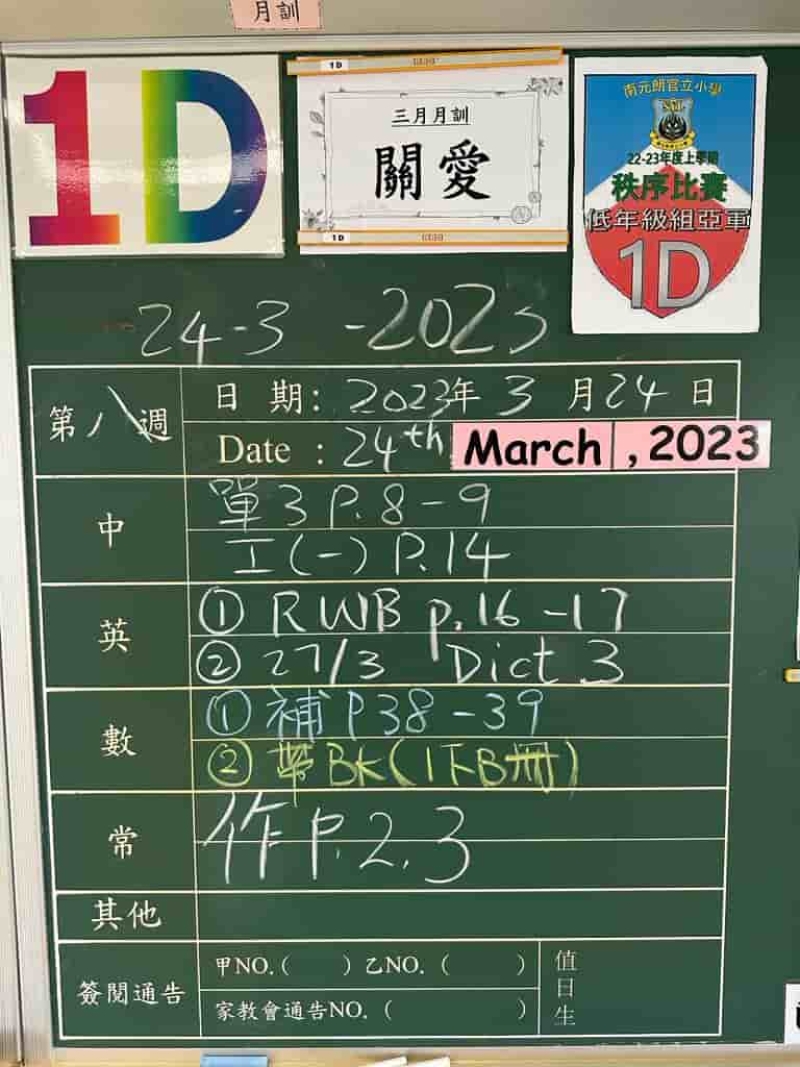 月訓
1D
1D
三月月訓
關愛
1D
南元朗官立小學
22-23年度上學期
秩序比賽
低年級組亞軍
1D
24-3 -2023
第八週
日 期: 2023年 3 月24 日
Date : 24th March , 2023
中
單3 P.8-9
工(一) P.14
英
① RWB p.16 -17
② 27/3 Dict 3
數
① 補 P38-39
② 帶BK(1下B冊)
常
作 P.2.3
其他
簽閱通告
甲NO.( ) 乙NO. ( )
家教會通告NO. ( )
值日生